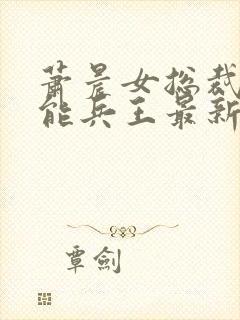 萧晨女总裁
能兵王最新
覃剑